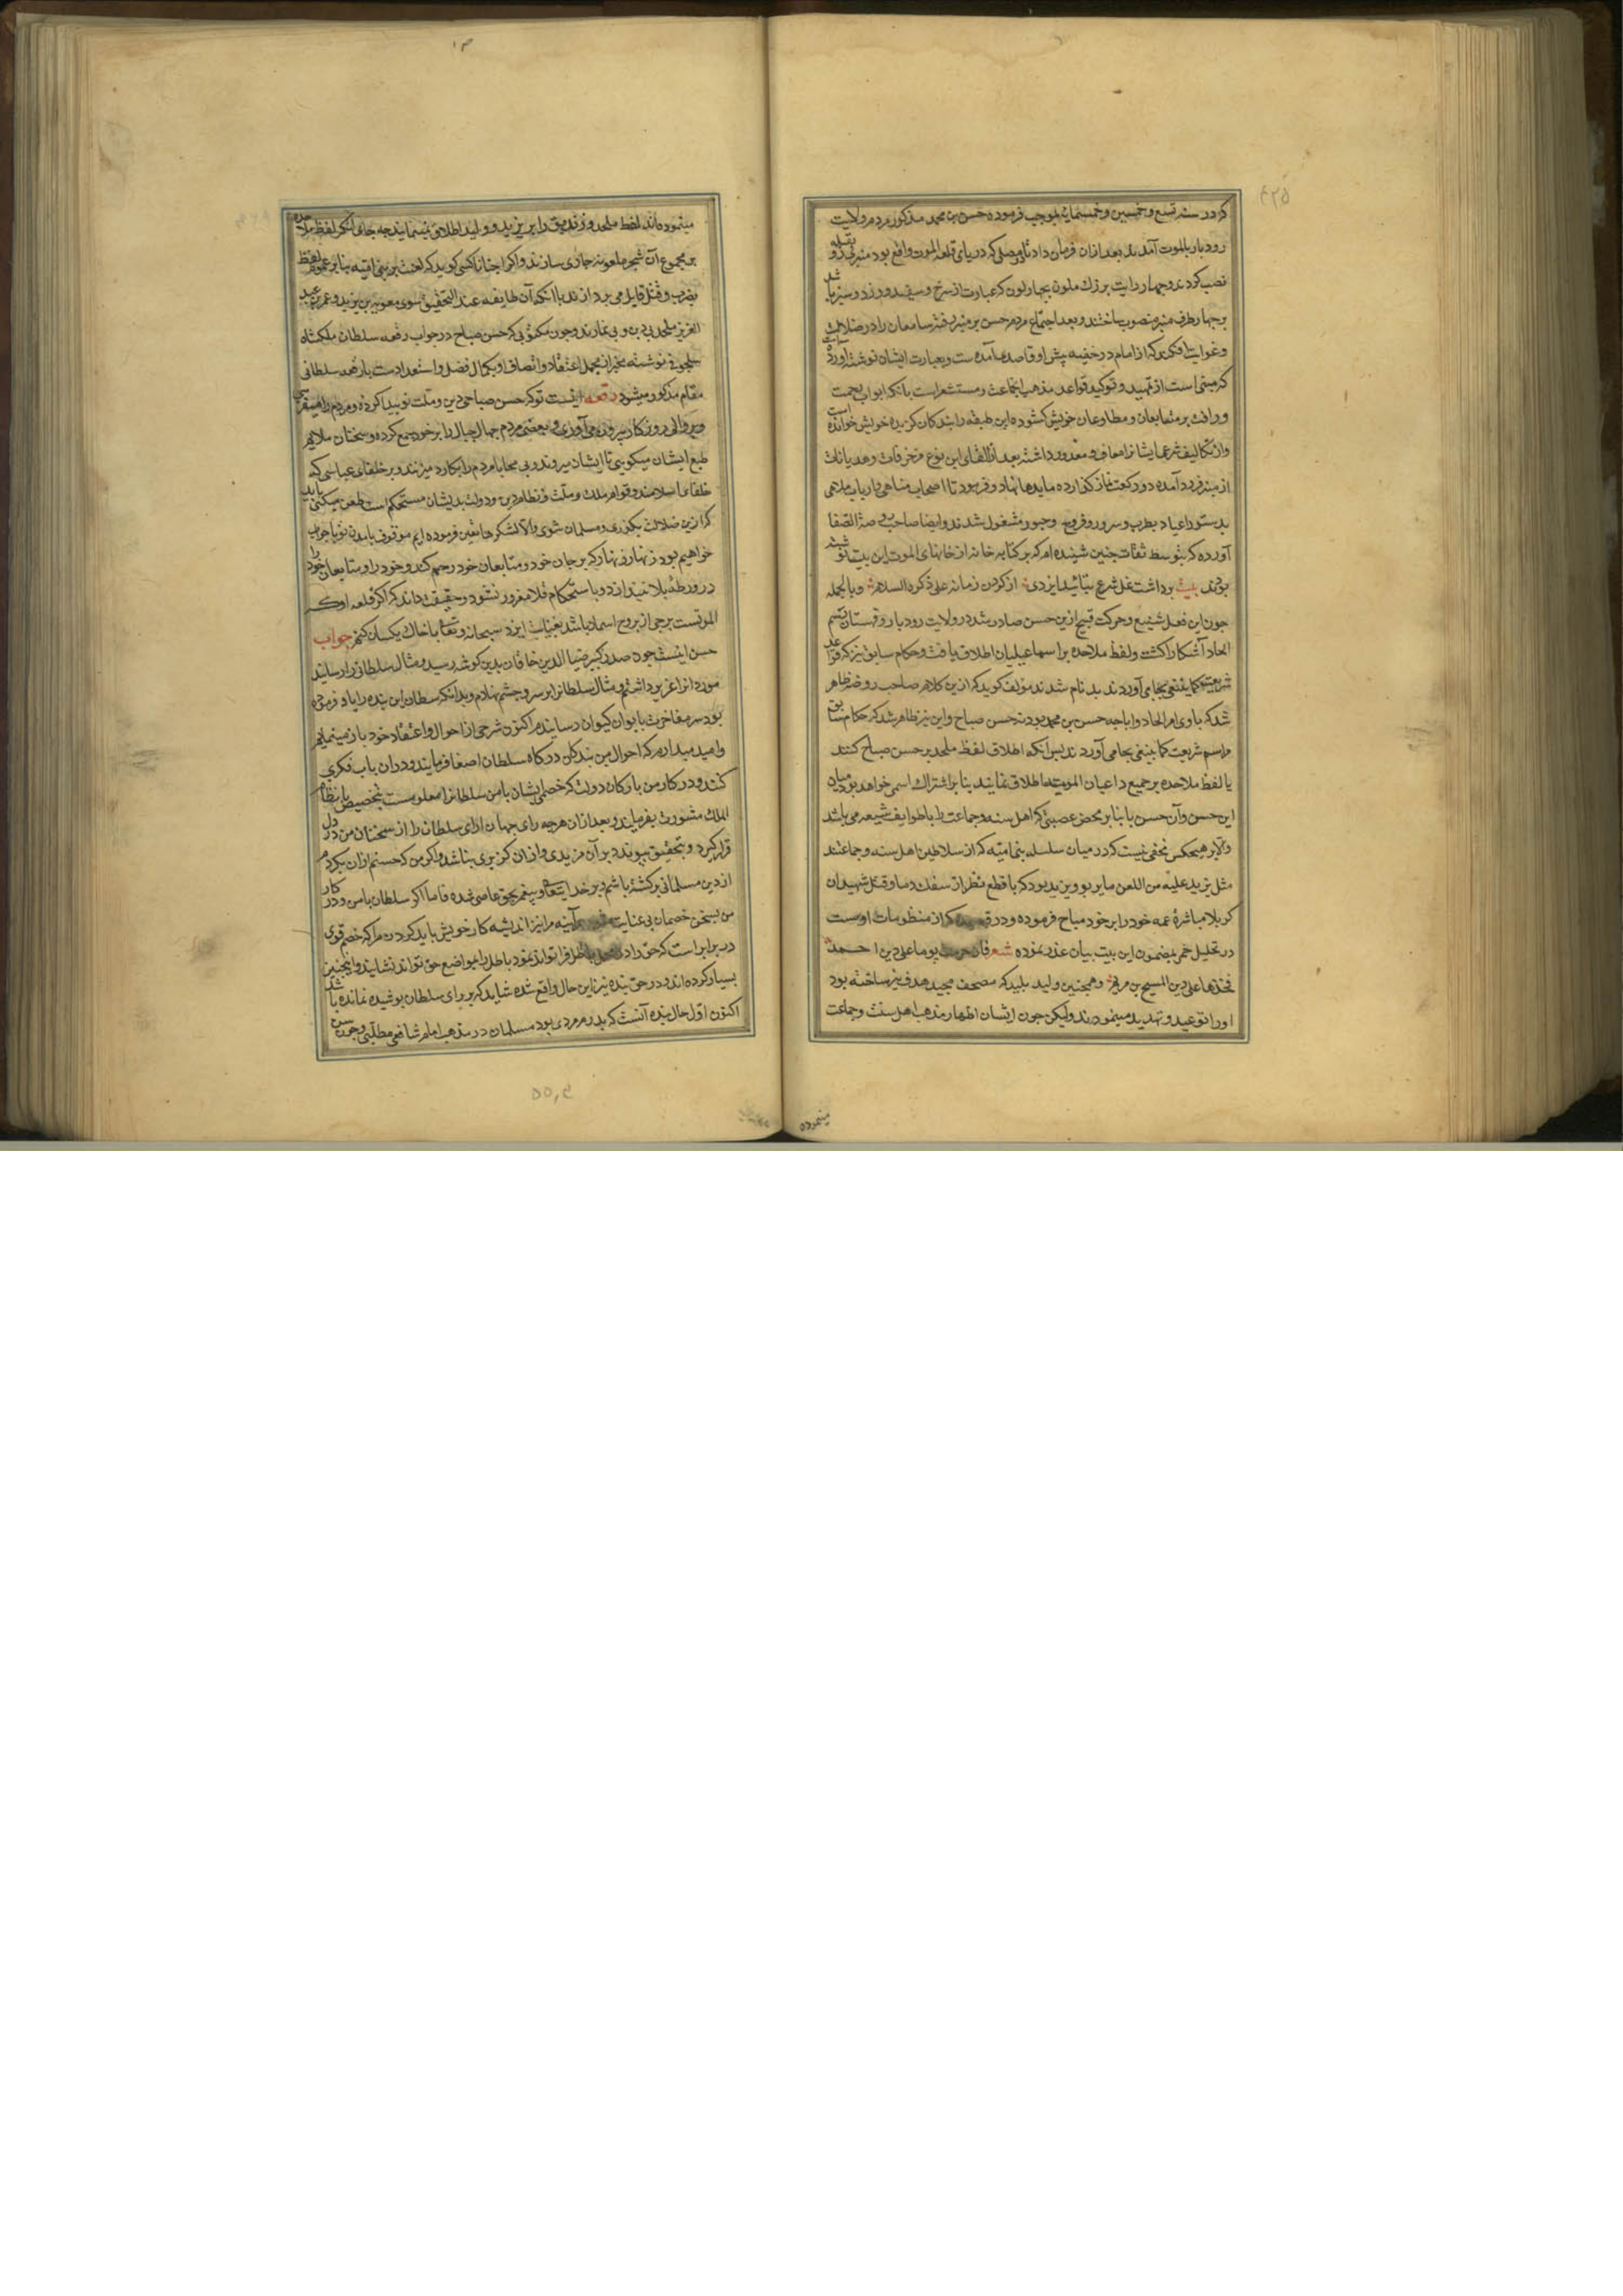 کردر سنه تسع و خمسین و خمسمایه بموجب فرموده حسن بن محمد مذکور مردم ولایت
رودبار بالموت آمدند بعد ازان فرمان داد تا در مصلی که در پای قلعه الموت واقع بود منبری رو بقبله
نصب کردند و چهار رایت بزرک ملون بچهار لون که عبارت از سرخ و سفید و زرد و سبز باشد
بر چهار طرف منبر منصوب ساختند و بعد اجتماع مردم حسن بر منبر رفته سامعان را در ضلالت
و غوایت افکند که از امام در خفیه پیش او قاصد آمده است و بعبارت ایشان نوشته آورده
که مبنی است از تمهید و توکید قواعد مذهب و مستشعر است بآنکه ابواب رحمت
و رافت بر متابعان و مطاوعان خویش کشوده این طبقه را بندکان کزیده خویش خوانده است
و از تکالیف شرعیه ایشانرا معاف و معذور داشته بعد از القای این نوع مزخرفات و هذیانات
از منبر فرود آمده دو رکعت نماز کذارده مایدها نهاد و فرمود تا اصحاب مناهی و ارباب ملاهی
بدستور اعیاد بطرب و سرور و فجور مشغول شدند و ایضا صاحب روضة الصفا
آورده که بتوسط ثقات چنین شنیده ام که بر کتابه خانه از خانهای الموت این بیت نوشته
بودند بیت برداشت غل شرع بتائید ایزدی از کردن زمانه علی ذکره السلام و بالجمله
چون این فعل شنیع و حرکت قبیح ازین حسن صادر شد در ولایت رودبار و قهستان رسم
الحاد آشکارا کشت و لفظ ملاحده بر اسماعیلیان اطلاق یافت و حکام سابق نیز که قواعد
شریعت کما ینبغی بجا می آوردند بد نام شدند مؤلف کوید که ازین کلام صاحب روضه ظاهر
شد که باوی امر الحاد و اباحه حسن بن محمد بود نه حسن صباح و این نیز ظاهر شد که حکام سابق
مراسم شریعت کما ینبغی بجا می آوردند پس آنکه اطلاق لفظ ملحد بر حسن صباح کنند
یا لفظ ملاحده بر جمیع داعیان الموتیه اطلاق نمایند بنا بر اشتراک اسمی خواهد بود میان
این حسن و آن حسن یا بنا بر محض عصبیتی که اهل سنه و جماعت را با طوایف شیعه می باشد
والا بر هیچکس مخفی نیست که در میان سلسله بنی امیه که از سلاطین اهل سنه و جماعتند
مثل یزید علیه من اللعن ما یربو و یزید بود که با قطع نظر از سفک دما و قتل شهیدان
کربلا مباشرة عمه خود را بر خود مباح فرموده و در که از منظومات اوست
در تحلیل خمر بمضمون این بیت بیان عذر نموده شعر فان حرمت یوما علی دین احمد
فخذها علی دین المسیح بن مریم و همچنین ولید پلید که مصحف مجید هدف تیر ساخته بود
او را توعید و تهدید مینمودند ولیکن چون ایشان اظهار مذهب اهل سنت و جماعت
مینموده
مینموده اند لفظ ملحد و زندیق را بر یزید و ولید اطلاق نمینمایند چه جای آنکه لفظ ملاحده
بر مجموع آن شجره ملعونه جاری سازند و اکر احیانا کسی کوید که لعنت بر بنی امیه بنا بر عموم لفظ
بضرب و قتل قایل می پردازند با آنکه آن طایفه عند التحقیق سوی معویه بن یزید و عمر بن عبد
العزیز ملحد بی دین و بی نمازند و چون مکتوبی که حسن صباح در جواب رقعه سلطان ملکشاه
سلجوقی نوشته مخبر از مجمل اعتقاد و اتصاف او بکمال فضل و استعداد است با رقعه سلطانی
مقام مذکور میشود رقعه اینست تو که حسن صباحی دین و ملت نو پیدا کرده و مردم را میفریبی
و بر والی روزکار بیرون می آوری و بعضی مردم جهال جبال را بر خود جمع کرده و سخنان ملایم
طبع ایشان میکویی تا ایشان میروند و بی محابا مردم را بکارد میزنند و بر خلفای عباسی که
خلفای اسلامند و قوام ملک و ملت و نظام دین و دولت بدیشان مستحکم است طعن میکنی باید
که ازین ضلالت بکذری و مسلمان شوی والا لشکرها تعین فرموده ایم موقوف بآمدن تو یا جواب
خواهیم بود زنهار زنهار که بر جان خود و متابعان خود رحم کند و خود را و متابعان خود را
در ورطه بلا نیندازد و باستحکام قلاع مغرور نشود و حقیقت داند که اکر قلعه او که
الموتست برجی از بروج اسمان باشد بعنایت ایزد سبحانه و تعالی با خاک یکسان کنم جواب
حسن اینست چون صدر کبیر ضیاء الدین خاقان بدین کوشه رسید و مثال سلطانی را رسانید
مورد انرا عزیز داشتم و مثال سلطانرا بر سر و چشم نهادم و بدانکه سلطان این بنده را یاد فرموده
بود سر مفاخرت بایوان کیوان رسانیدم اکنون شرحی از احوال و اعتقاد خود باز مینمایم
و امید میدارم که احوال من بندکان درکاه سلطان اصغا فرمایند و دران باب فکری
کنند و در کار من با ارکان دولت که خصمی ایشان با من سلطانرا معلومست بتخصیص با نظام
الملک مشورت نفرمایند و بعد ازان هرچه رای جهان ارای سلطان را از سخنان من در دل
قرار کیرد و بتحقیق پیوندد بر آن مزیدی و ازان کزیری نباشد و اکر من که حسنم ازان بکردم
از دین مسلمانی برکشته باشم و بر خدای تعالی و پیغمبر بحق عاصی شده فاما اکر سلطان با من و در کار
من بسخن خصمان بی عنایت هر آینه مرا نیز اندیشه کار خویش باید کردن مرا که خصم قوی
در برابر است که حق را در باطل فرا تواند نمود باطل را بمواضع حق تواند نشانید و اینچنین
بسیار کرده اند و در حق بنده نیز این حال واقع شده شاید که بر رای سلطان پوشیده نمانده باشد
اکنون اول حال بنده آنست که پدرم مردی بود مسلمان در مذهب امام شافعی مطلبی و چون